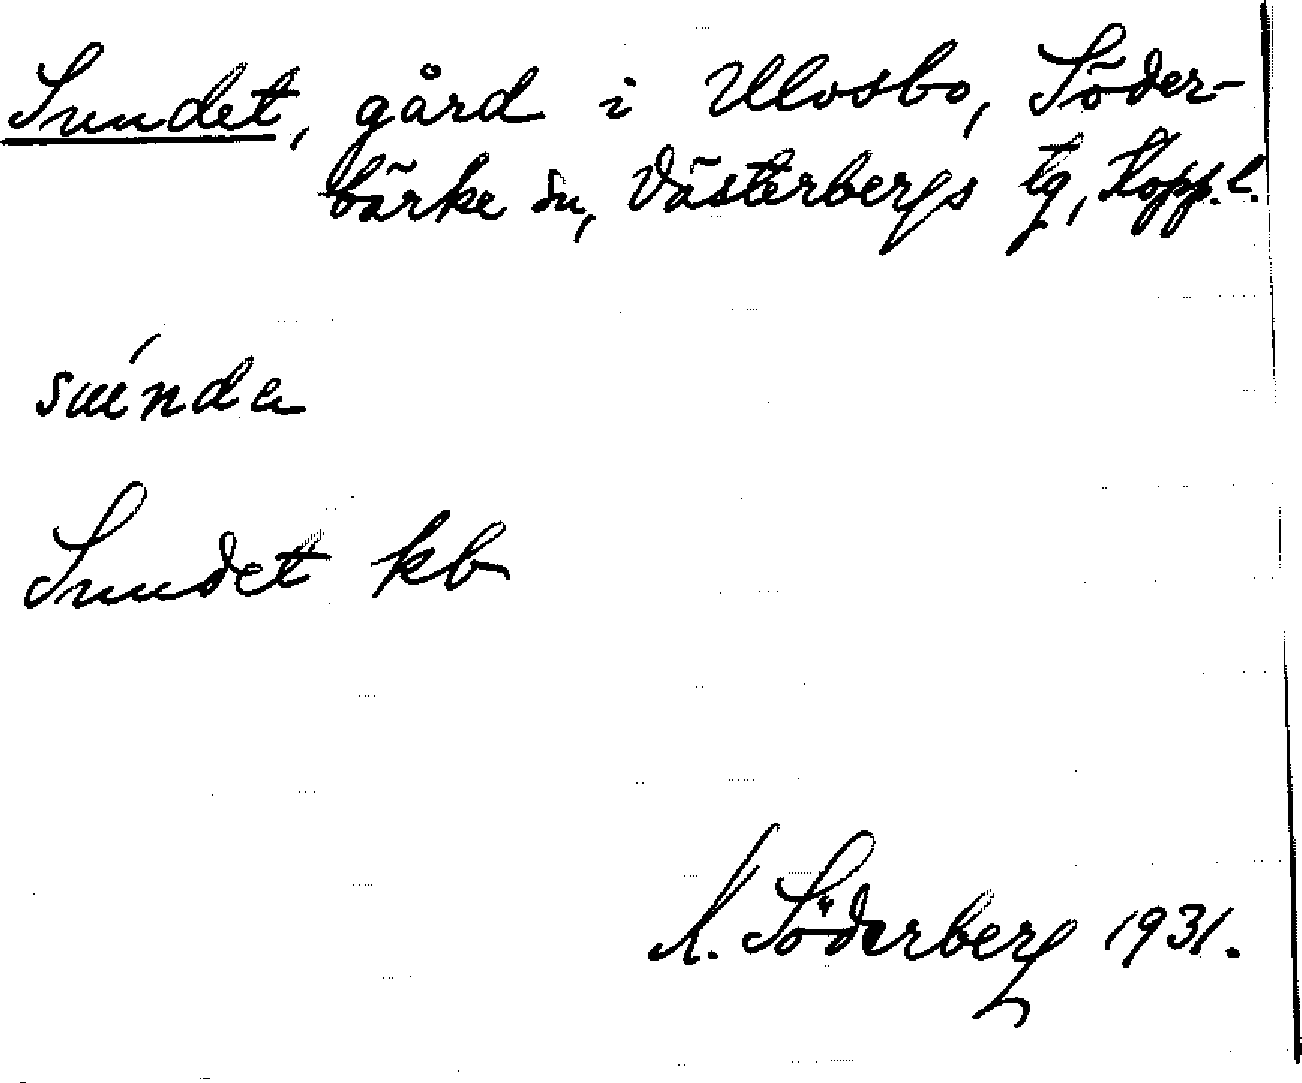 Sundet, gård i Ulvsbo, Söder-
bärke sn, Västerbergs tg, Kopp. l.
súnda
Sundet kb
A. Söderberg 1931.